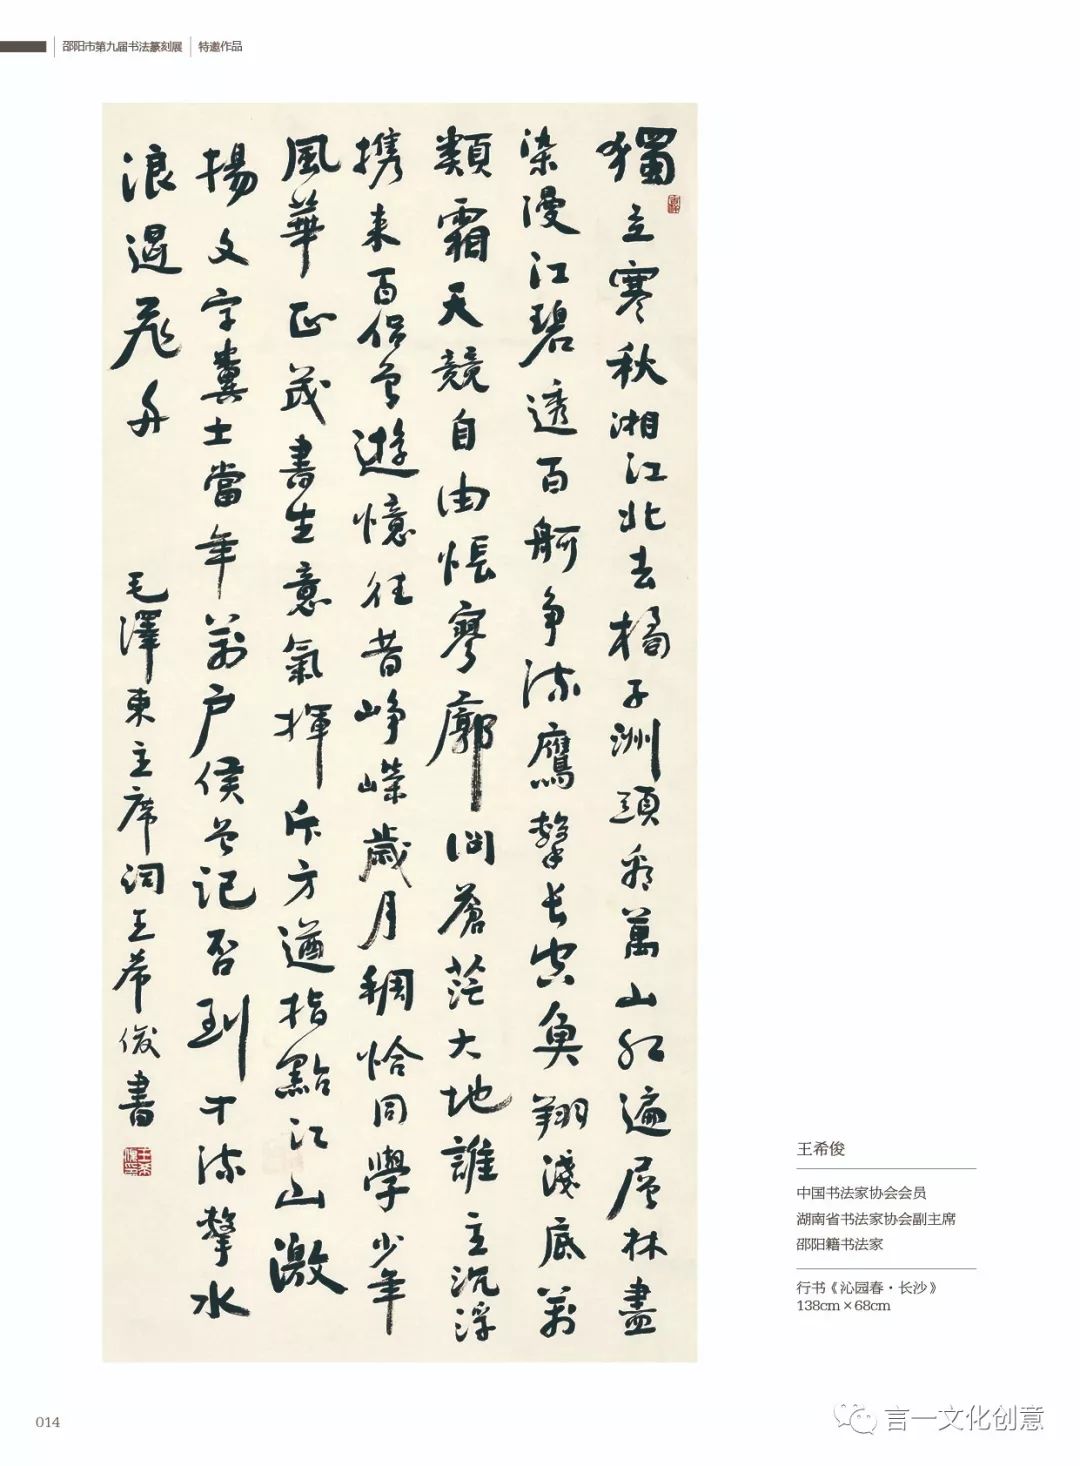 邵阳市第九届书法篆刻展 特邀作品
獨立寒秋湘江北去橘子洲頭看萬山紅遍層林盡
染漫江碧透百舸争流鷹擊長空魚翔淺底萬
類霜天競自由悵寥廓問蒼茫大地誰主沉浮
携来百侣曾遊憶往昔崢嶸歲月稠恰同學少年
風華正茂書生意氣揮斥方遒指點江山激
揚文字糞土當年萬户侯曾記否到中流擊水
浪遏飛舟
毛澤東主席詞王希俊書
王希俊
中国书法家协会会员
湖南省书法家协会副主席
邵阳籍书法家
行书《沁园春·长沙》
138cm×68cm
014
言一文化创意